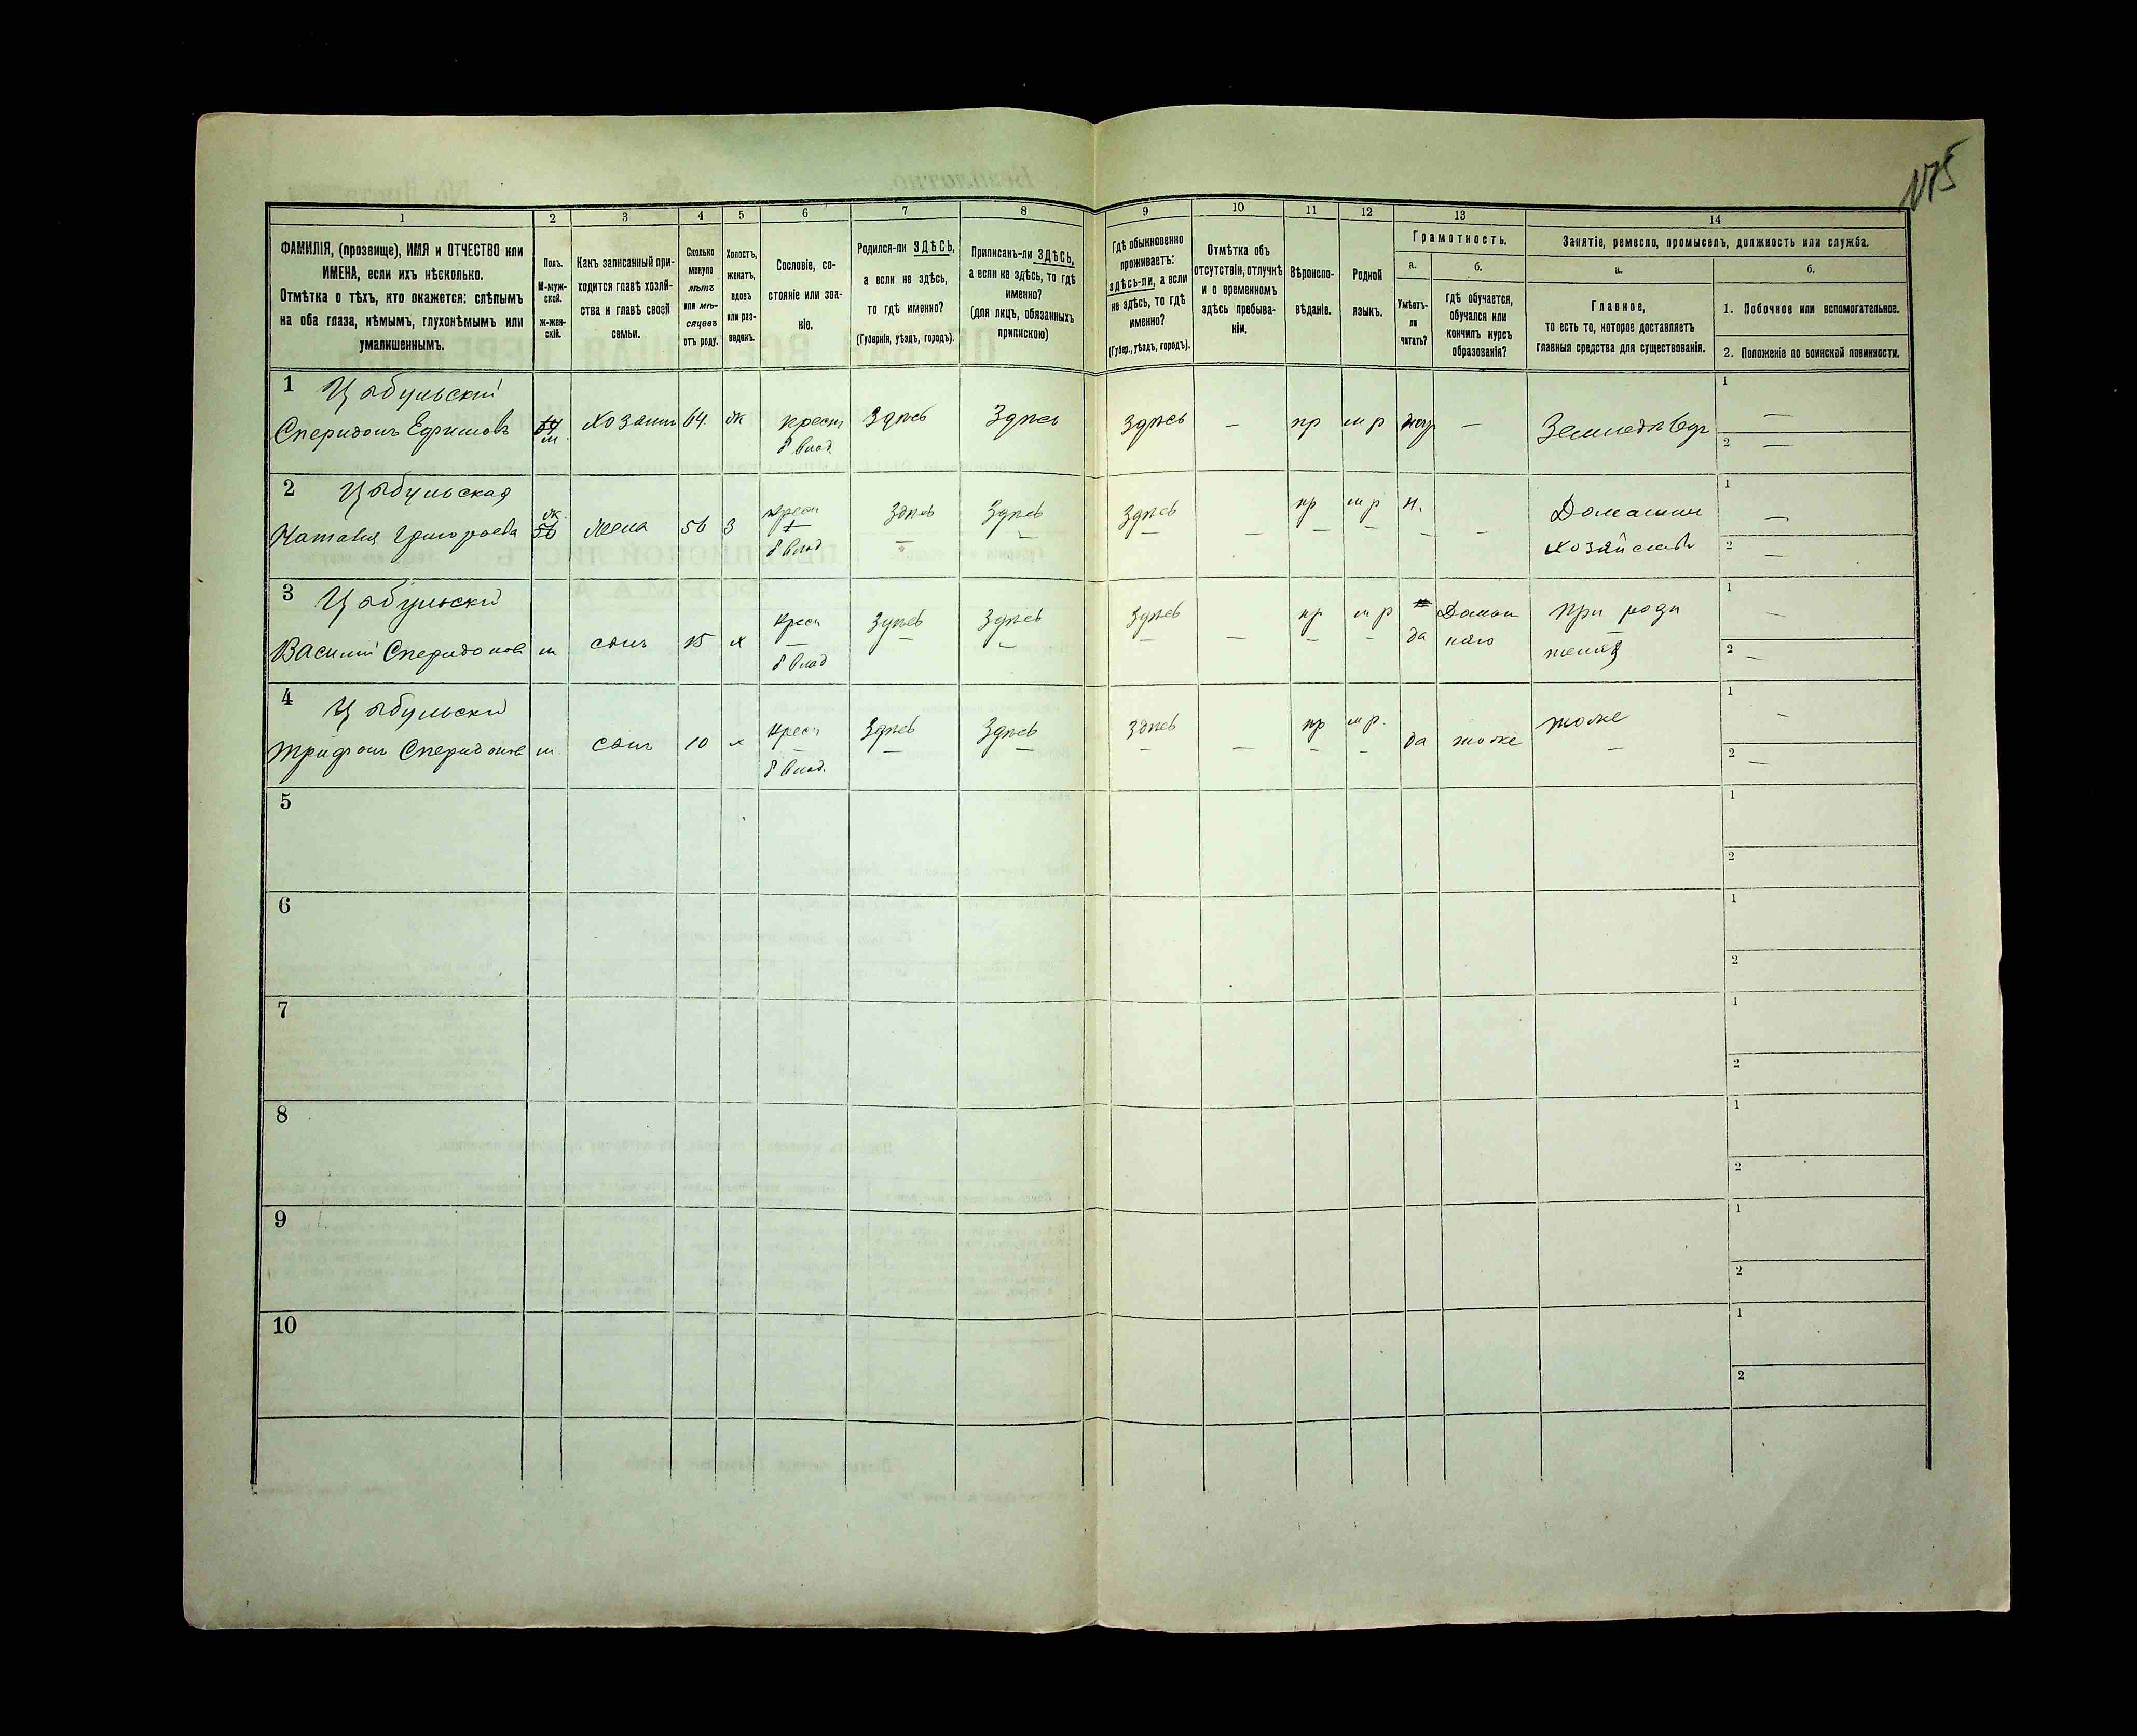 175
1 2 3 4 5 6 7 8 9 10 11 12 13 14
ФАМИЛІЯ, (прозвище), ИМЯ и ОТЧЕСТВО или
ИМЕНА, если ихъ нѣсколько.
Отмѣтка о тѣхъ, кто окажется: слѣпымъ
на оба глаза, нѣмымъ, глухонѣмымъ или
умалишеннымъ.
Полъ.
М-муж-
ской.
Ж-жен-
скій.
Какъ записанный при-
ходится главѣ хозяй-
ства и главѣ своей
семьи.
Сколько
минуло
лѣтъ
или мѣ-
сяцевъ
отъ роду.
Холостъ,
женатъ,
вдовъ
или раз-
веденъ.
Сословіе, со-
стояніе или зва-
ніе.
Родился-ли ЗДѢСЬ,
а если не здѣсь,
то гдѣ именно?
(Губернія, уѣздъ, городъ).
Приписанъ-ли ЗДѢСЬ,
а если не здѣсь, то гдѣ
именно?
(для лицъ, обязанныхъ
припискою)
Гдѣ обыкновенно
проживаетъ:
здѣсь-ли, а если
не здѣсь, то гдѣ
именно?
(Губер., уѣздъ, городъ).
Отмѣтка объ
отсутствіи, отлучкѣ
и о временномъ
здѣсь пребыва-
ніи.
Вѣроиспо-
вѣданіе.
Родной
языкъ.
Грамотность.
а.
Умѣетъ-
ли
читать?
б.
гдѣ обучается,
обучался или
кончилъ курсъ
образованія?
Занятіе, ремесло, промыселъ, должность или служба.
а.
Главное,
то есть то, которое доставляетъ
главныя средства для существованія.
б.
1. Побочное или вспомогательное.
2. Положеніе по воинской повинности.
1 Цыбульскій
Спиридонъ Ефимовъ м. Хозяинъ 64. ж крест Здѣсь Здѣсь Здѣсь — пр м р — Земледѣл 1 —
б влад. 2 —
2 Цыбульская
Наталія Григорьева ж. жена 56 З крест Здѣсь Здѣсь Здѣсь — пр м р н. — Домашнее 1 —
б влад хозяйство 2 —
3 Цыбульскій
Василий Спиридонов м сынъ 15 х крест Здѣсь Здѣсь Здѣсь — пр м р да Домаш при роди 1 —
б влад няго теляхъ 2 —
4 Цыбульскій
Трифонъ Спиридонов м. сынъ 10 х крест Здѣсь Здѣсь Здѣсь — пр м р. да тоже тоже 1 —
б влад. 2 —
5 1
2
6 1
2
7 1
2
8 1
2
9 1
2
10 1
2